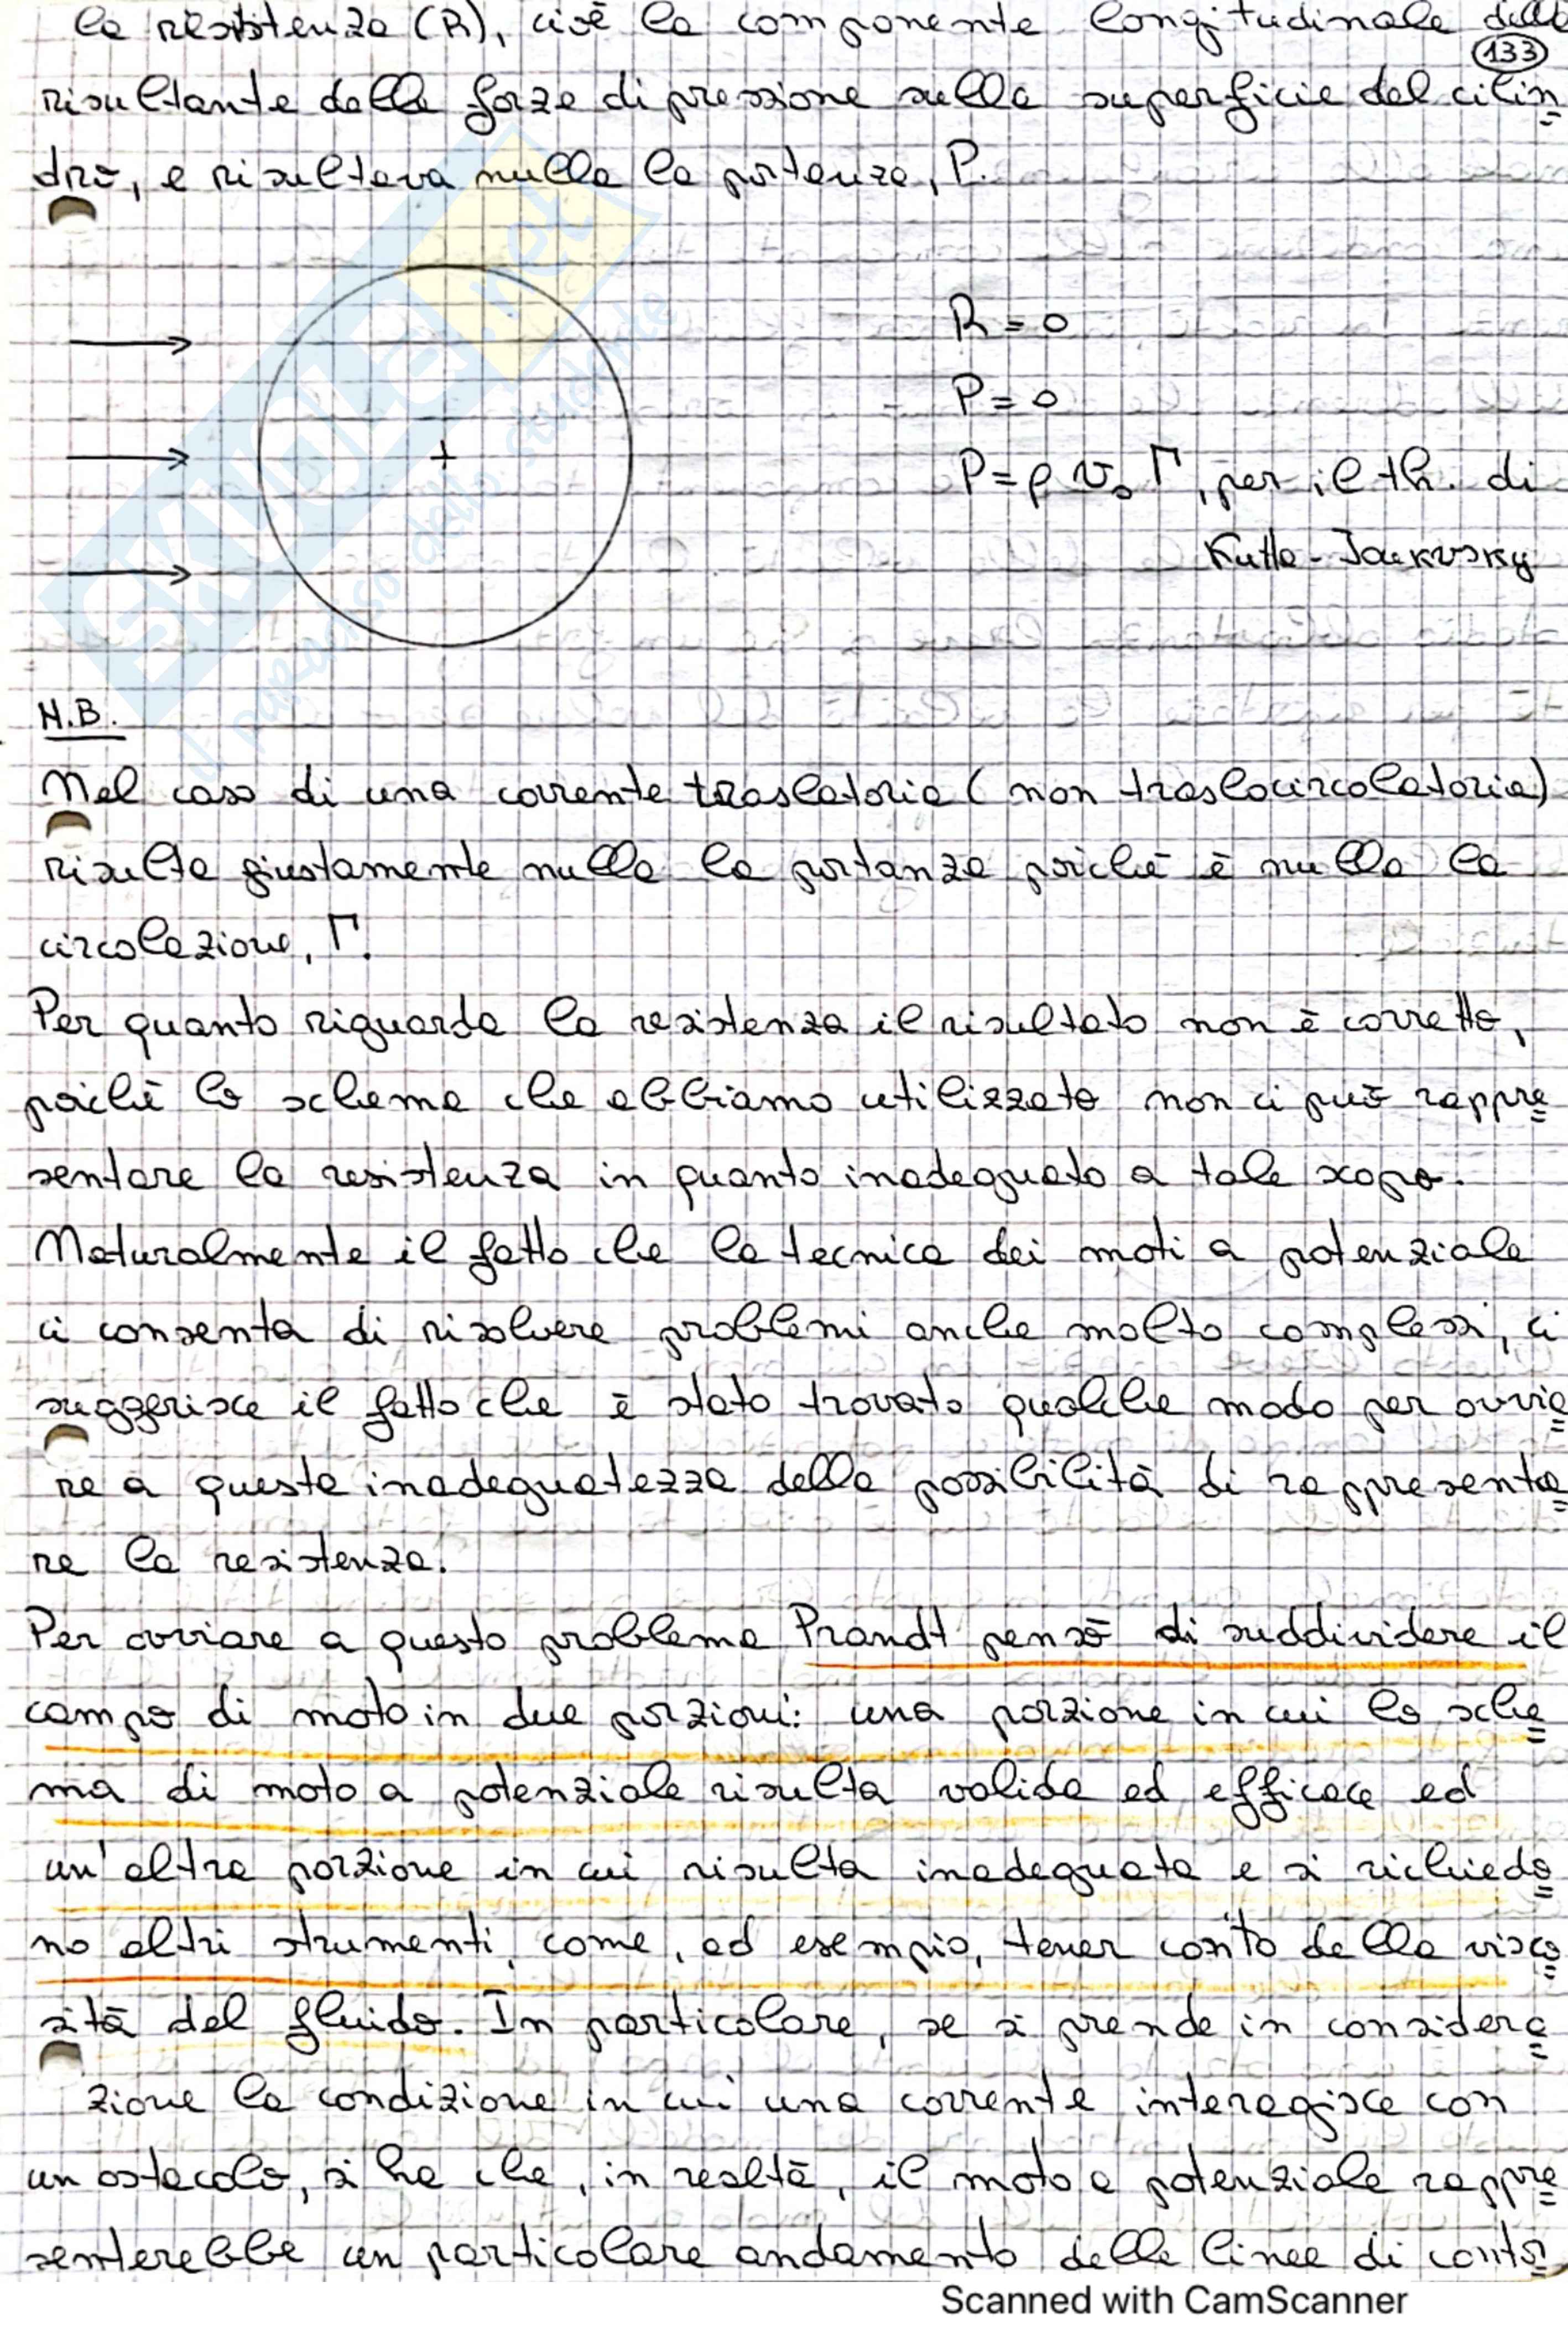 la resistenza (R), cioè la componente longitudinale della
133
risultante delle forze di pressione sulla superficie del cilin
dro, e risultava nulla la portanza, P.
R = 0
P = 0
P = ρ v₀ Γ, per il th. di
Kutta-Joukvsky
N.B.
Nel caso di una corrente traslatoria (non traslocircolatoria)
risulta giustamente nulla la portanza poichè è nulla la
circolazione, Γ.
Per quanto riguarda la resistenza il risultato non è corretto,
poichè lo schema che abbiamo utilizzato non ci può rappre
sentare la resistenza in quanto inadeguato a tale scopo.
Naturalmente il fatto che la tecnica dei moti a potenziale
ci consenta di risolvere problemi anche molto complessi, ci
suggerisce il fatto che è stato trovato qualche modo per ovvia
re a questa inadeguatezza della possibilità di rappresenta
re la resistenza.
Per ovviare a questo problema Prandt pensò di suddividere il
campo di moto in due porzioni: una porzione in cui lo sche
ma di moto a potenziale risulta valido ed efficace ed
un'altra porzione in cui risulta inadeguato e si richiedo
no altri strumenti, come, ad esempio, tener conto della visco
sità del fluido. In particolare, se si prende in considera
zione la condizione in cui una corrente interagisce con
un ostacolo, si ha che, in realtà, il moto a potenziale rappre
senterebbe un particolare andamento delle linee di contor
SKUOLA.net
il paradiso dello studente
Scanned with CamScanner